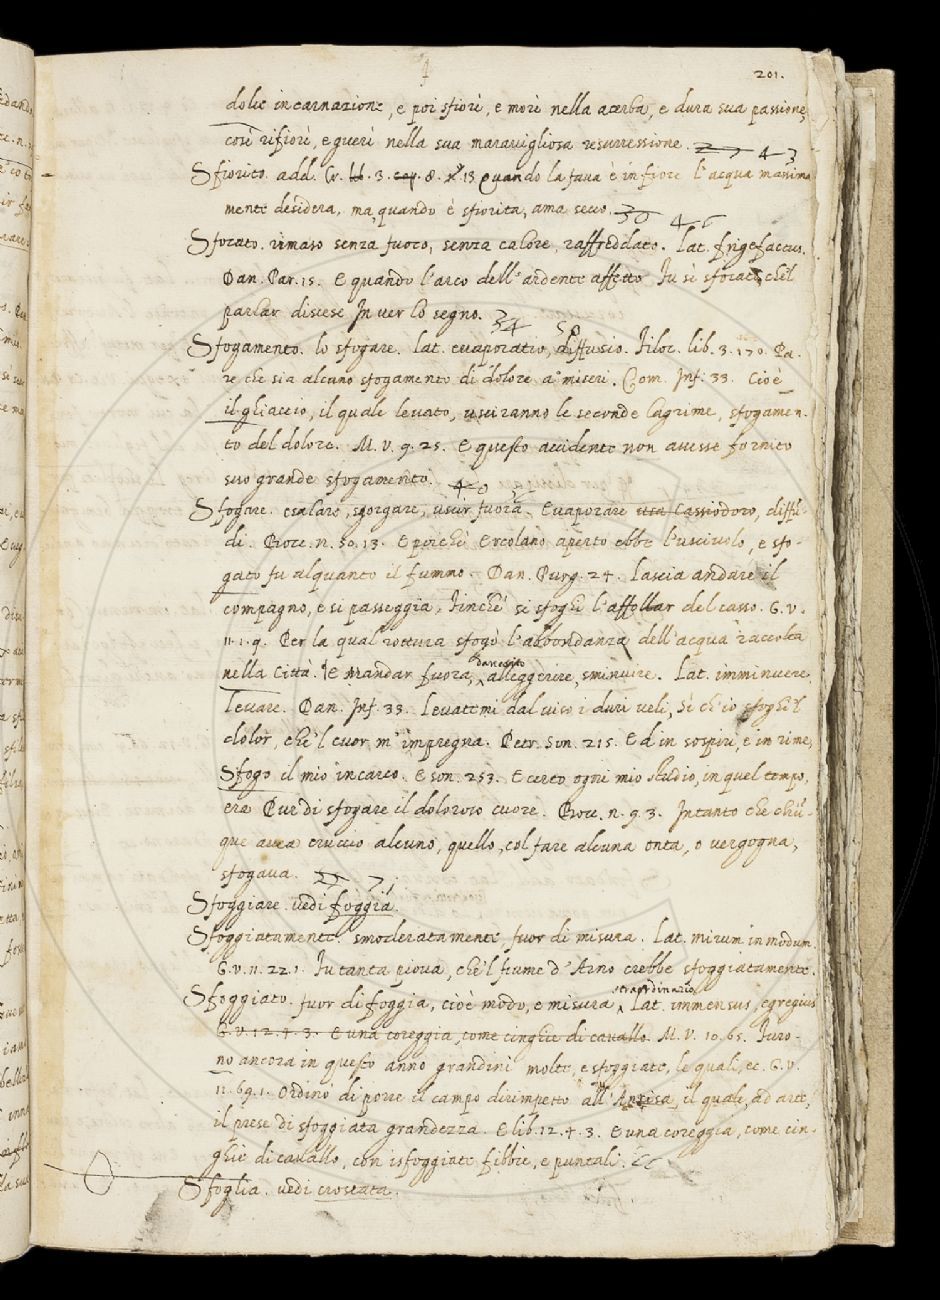 201.
dolce incarnazione, e poi sfiorì, e morì nella acerba, e dura sua passione,
così rifiorì, e guerì nella sua maravigliosa resurressione. 27 43
Sfiorito. add. Cr. lib. 3. cap. 8. 13 Quando la fava è in fiore l'acqua massima
mente desidera, ma quando è sfiorita, ama secco. 30 46
Sfocato. rimaso senza fuoco, senza calore, raffreddato. Lat. frigefactus.
Dan. Par. 15. E quando l'arco dell'ardente affetto Fu sì sfocato, che'l
parlar discese In ver lo segno. 34 50
Sfogamento. lo sfogare. Lat. evaporatio, diffusio. Filoc. lib. 3. 170. Pa-
re che sia alcuno sfogamento di dolore a' miseri. Com. Inf. 33. Cioè
il gliaccio, il quale levato, usciranno le seconde lagrime, sfogamen-
to del dolore. M. V. 9. 25. E questo accidente non avesse fornito
suo grande sfogamento. 40
Sfogare. esalare, sgorgare, uscir fuora. Evaporare usa Cassiodoro, diffū-
di. Bocc. n. 50. 13. E poichè Ercolano aperto ebbe l'usciuolo, e sfo-
gato fu alquanto il fummo. Dan. Purg. 24. Lascia andare il
compagno, e si passeggia, Finchè si sfoghi l'affollar del casso. G. V.
11. 1. 9. Per la qual rottura sfogò l'abbondanza dell'acqua raccolta
nella Città. E mandar fuora, dare esito alleggerire, sminuire. Lat. imminuere,
levare. Dan. Inf. 33. Levatemi dal viso i duri veli, Sì ch'io sfoghi'l
dolor, che'l cuor m'impregna. Petr. Son. 215. Ed in sospiri, e in rime,
Sfogo il mio incarco. E son. 253. E certo ogni mio studio, in quel tempo,
era Pur di sfogare il doloroso cuore. Bocc. n. 9. 3. Intanto che chiū-
que avea cruccio alcuno, quello, col fare alcuna onta, o vergogna,
sfogava. 27 71
Sfoggiare. vedi foggia.
Sfoggiatamente. smoderatamente, fuor di misura. Lat. mirum inmodum.
G. V. 11. 22. 1. Fu tanta piova, che'l fiume d'Arno crebbe sfoggiatamente.
Sfoggiato. fuor di foggia, cioè modo, e misura, straordinario Lat. immensus, egregius
G. V. 12. 4. 3. E una coreggia, come cinghie di cavallo. M. V. 10. 65. Furo-
no ancora in questo anno grandini molte, e sfoggiate, le quali, ec. G. V.
11. 69. 1. Ordinò di porre il campo dirimpetto all'Antisa, il quale, ad arte,
il prese di sfoggiata grandezza. E lib. 12. 4. 3. E una coreggia, come cin-
ghie di cavallo, con isfoggiate fibbie, e puntali.
Sfoglia. vedi crostata.